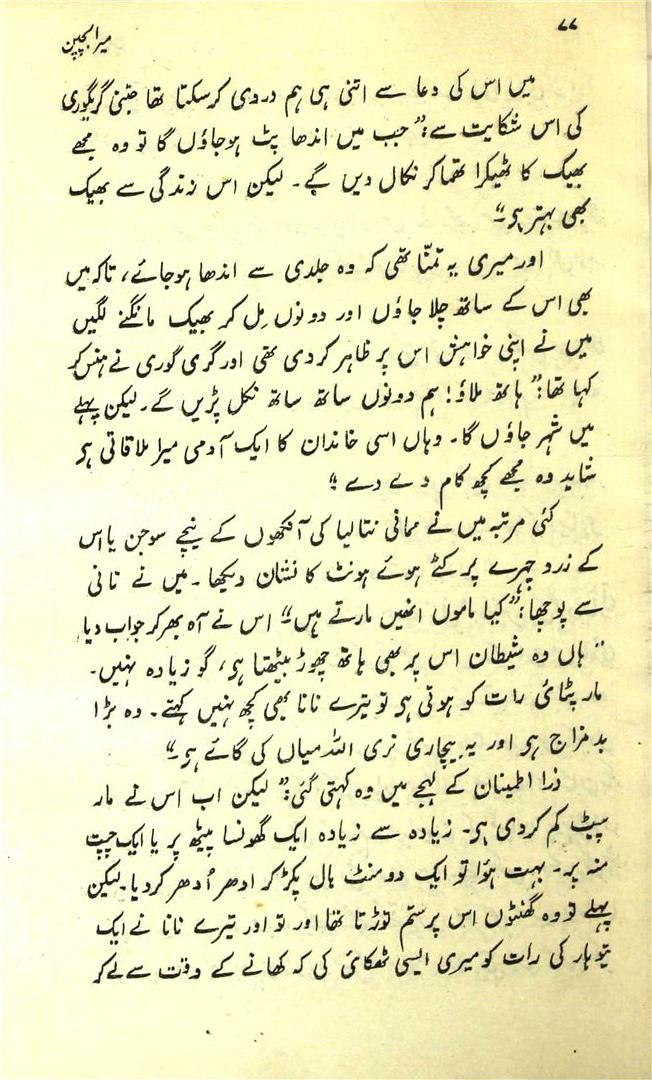 ۷۷
میرا بچپن
میں اس کی دعا سے اتنی ہی ہم دردی کرسکتا تھا جتنی گریگوری
کی اس شکایت سے:” جب میں اندھا پٹ ہوجاؤں گا تو وہ مجھے
بھیک کا ٹھیکرا تھماکر نکال دیں گے۔ لیکن اس زندگی سے بھیک
بھی بہتر ہو۔“
اور میری یہ تمنّا تھی کہ وہ جلدی سے اندھا ہوجائے، تاکہ میں
بھی اس کے ساتھ چلا جاؤں اور دونوں مِل کر بھیک مانگنے لگیں
میں نے اپنی خواہش اس پر ظاہر کردی تھی اور گری گوری نے ہنس کر
کہا تھا:” ہاتھ ملاؤ! ہم دونوں ساتھ ساتھ نکل پڑیں گے۔ لیکن پہلے
میں شہر جاؤں گا۔ وہاں اسی خاندان کا ایک آدمی میرا ملاقاتی ہو
شاید وہ مجھے کچھ کام دے دے“
کئی مرتبہ میں نے ممانی نتالیا کی آنکھوں کے نیچے سوجن یا اس
کے زرد چہرے پر کٹے ہوئے ہونٹ کا نشان دیکھا۔ میں نے نانی
سے پوچھا:” کیا ماموں انھیں مارتے ہیں“ اس نے آہ بھر کر جواب دیا
” ہاں وہ شیطان اس پر بھی ہاتھ چھوڑ بیٹھتا ہو، گو زیادہ نہیں۔
مار پٹائی رات کو ہوتی ہو تو تیرے نانا بھی کچھ نہیں کہتے۔ وہ بڑا
بدمزاج ہو اور یہ بیچاری نری اللہ میاں کی گائے ہو۔“
ذرا اطینان کے لہجے میں وہ کہتی گئی:” لیکن اب اس نے مار
پیٹ کم کردی ہو۔ زیادہ سے زیادہ ایک گھونسا پیٹھ پر یا ایک چپت
منہ پر۔ بہت ہؤا تو ایک دو منٹ بال پکڑ کر ادھر اُدھر کردیا۔ لیکن
پہلے تو وہ گھنٹوں اس پر ستم توڑتا تھا اور تو اور تیرے نانا نے ایک
تیوہار کی رات کو میری ایسی ٹھکائی کی کہ کھانے کے وقت سے لے کر